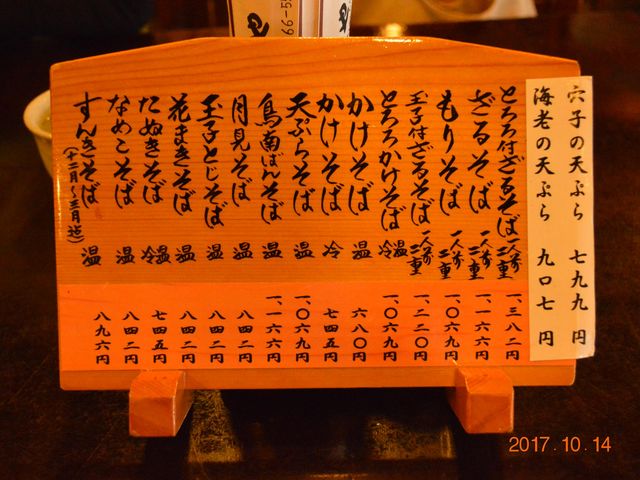 穴子の天ぷら 七九九円
海老の天ぷら 九〇七円
とろろ付ざるそば 一人前二重 一、三八二円
ざるそば 一人前二重 一、一六六円
もりそば 一人前二重 一、〇六九円
玉子付ざるそば 一人前二重 一、二二〇円
とろろかけそば 温冷 一、〇六九円
かけそば 温 六八〇円
かけそば 冷 七四五円
天ぷらそば 温 一、〇六九円
鳥南ばんそば 温 一、一六六円
月見そば 温 八四二円
玉子とじそば 温 八四二円
花まきそば 温 八四二円
たぬきそば 温冷 七四五円
なめこそば 温 八四二円
すんきそば (十二月〜三月迄) 温 八九六円
2017.10.14